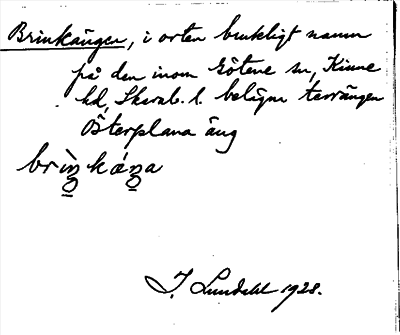 Brinkängen, i orten brukligt namn
på den inom Götene sn, Kinne
hd, Skarab. l. belägna terrängen
Österplana äng
brìŋ̲káŋ̲a
I. Lundahl 1928.